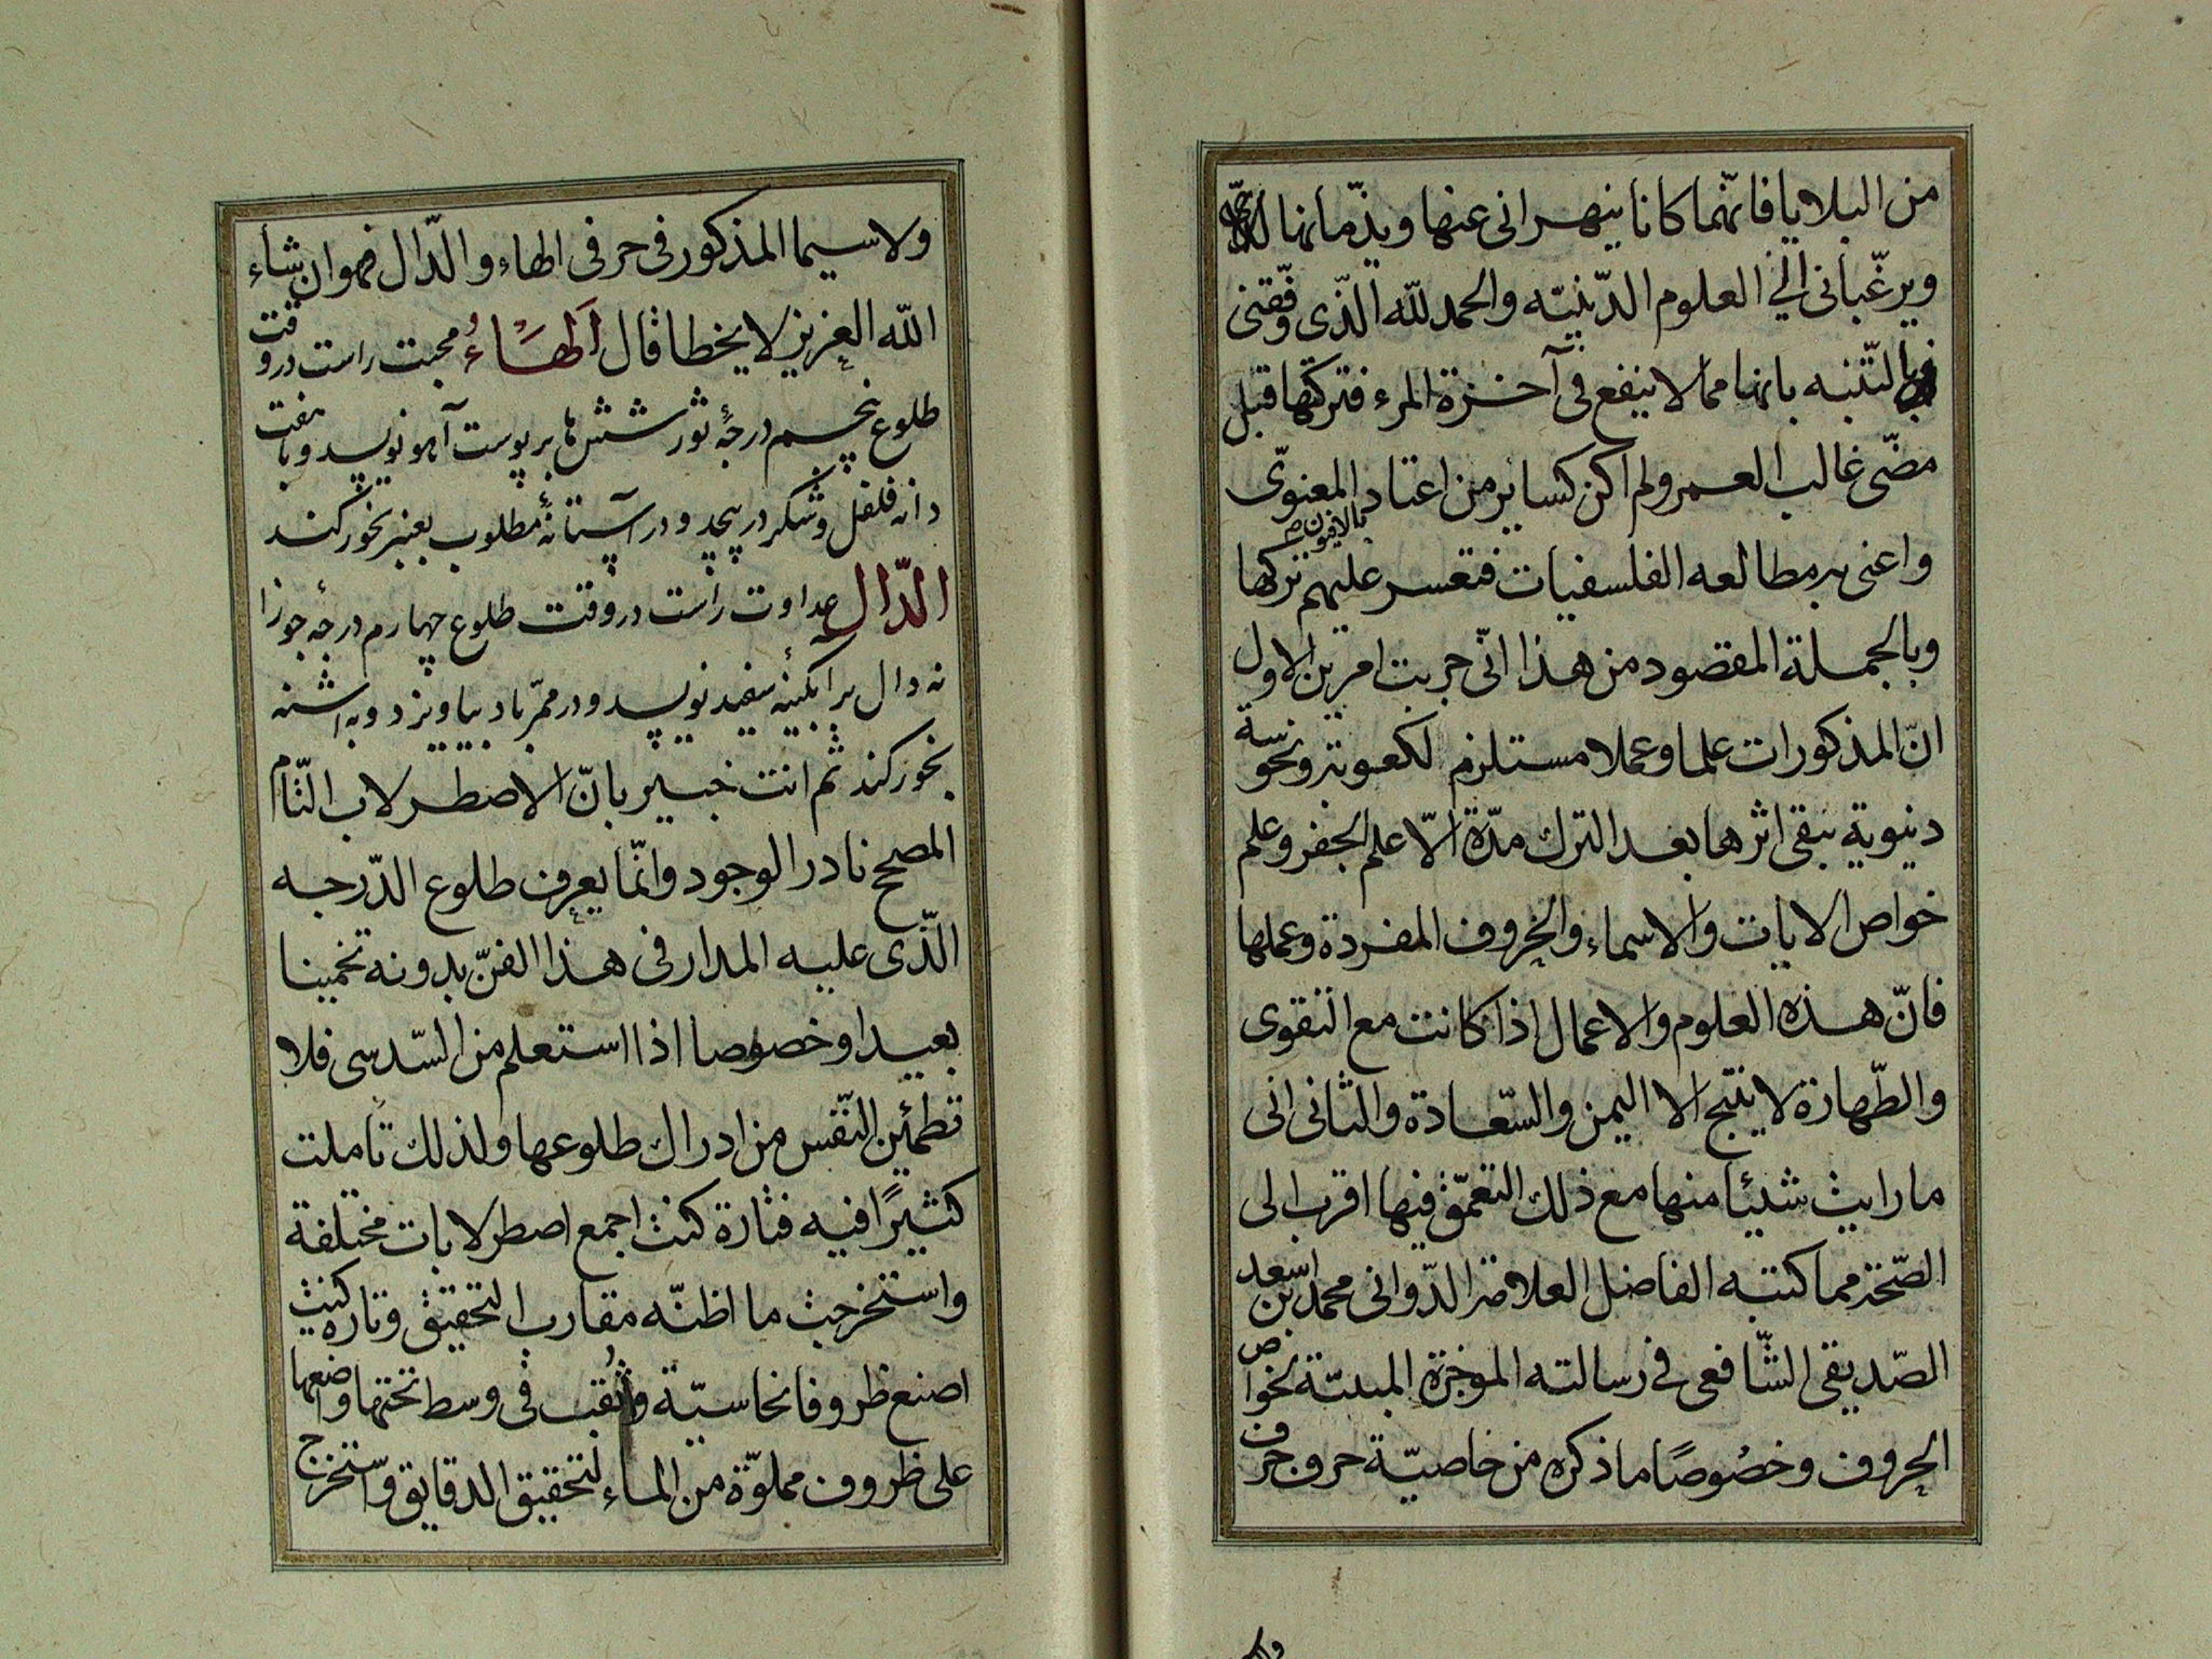 من البلايا فانّهما كانا ينهراني عنها ويذّمانها
ويرغّباني الي العلوم الدّينيّه والحمد للّه الّذى وفّقنى
بالتّنبه بانها ممالا ينفع فى آخرة المرء فتركتها قبل
مضّى غالب العمر ولم اكن كساير من اعتاد المعنوّى بالافيون
واعنى به مطالعه الفلسفيات فتعسر عليهم تركها
وبالجملة المقصود من هذا انّى جربت امرين الاول
انّ المذكورات علما وعملا مستلزم لكعوبة ونحوسة
دنيوية يبقى اثرها بعد الترك مدّة الّا علم الجفر وعلم
خواص الايات والاسماء والحروف المفردة وعملها
فانّ هذه العلوم والاعمال اذا كانت مع التقوى
والطّهارة لا ينتج الا اليمن والسّعادة والثانى انى
ما رايت شيئا منها مع ذلك التعمّق فيها اقرب الى
الصّحة مما كتبه الفاضل العلامة الدّوانى محمد بن اسعد
الصّديقى الشّافعى فى رسالته الموجزة المبينّة لخواص
الحروف وخصُوصًا ما ذكره من خاصيّة حروف حرف
ولاسيما المذكور فى حرفى الهاء والدّال فهو ان شاء
اللّه العزيز لا يخطا قال اَلهَاءُ محبت راست در وقت
طلوع پنجم درجهٔ ثور شش ها بر پوست آهو نويسد و با هفت
دانه فلفل و شكر در پيچد و در آستانهٔ مطلوب بعنبر بخور كند
الدّال عداوت راست در وقت طلوع چهارم درجهٔ جوزا
نه دال بر آبگينهٔ سفيد نويسد و در ممرّ باد بياويزد و به اشنه
بخور كند ثم انت خبير بانّ الاصطرلاب التّام
المصحح نادر الوجود وانّما يعرف طلوع الدّرجه
الّذى عليه المدار فى هذا الفنّ بدونه تخمينا
بعيدا وخصوصا اذا استعلم من السّدسى فلا
تطمئين النّفس من ادراك طلوعها ولذلك تاملت
كثيرًا فيه فتارة كنت اجمع اصطرلابات مختلفة
واستخرجت ما اظنّه مقارب التحقيق وتاره كنت
اصنع ظروفا نحاسيّة واُثقب فى وسط تحتها واضعها
على ظروف مملوّة من الماء لتحقيق الدقايق واستخرج